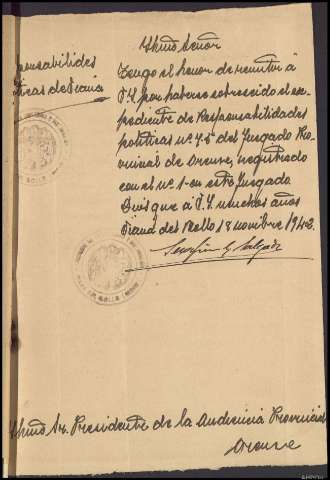 Iltmo Señor
ponsabilides
ticas de Viana
Tengo el honor de remitir á
V.I. por haberse sobreseido el ex-
pediente de Responsabilidades
politicas nº 75 del Juzgado Pro-
vincial de Orense, registrado
con el nº 1 en este Juzgado
Dios gue á V.I. muchos años
Viana del Bollo 18 novibre 1942
Iltmo Sr. Presidente de la Audiencia Provincial
Orense